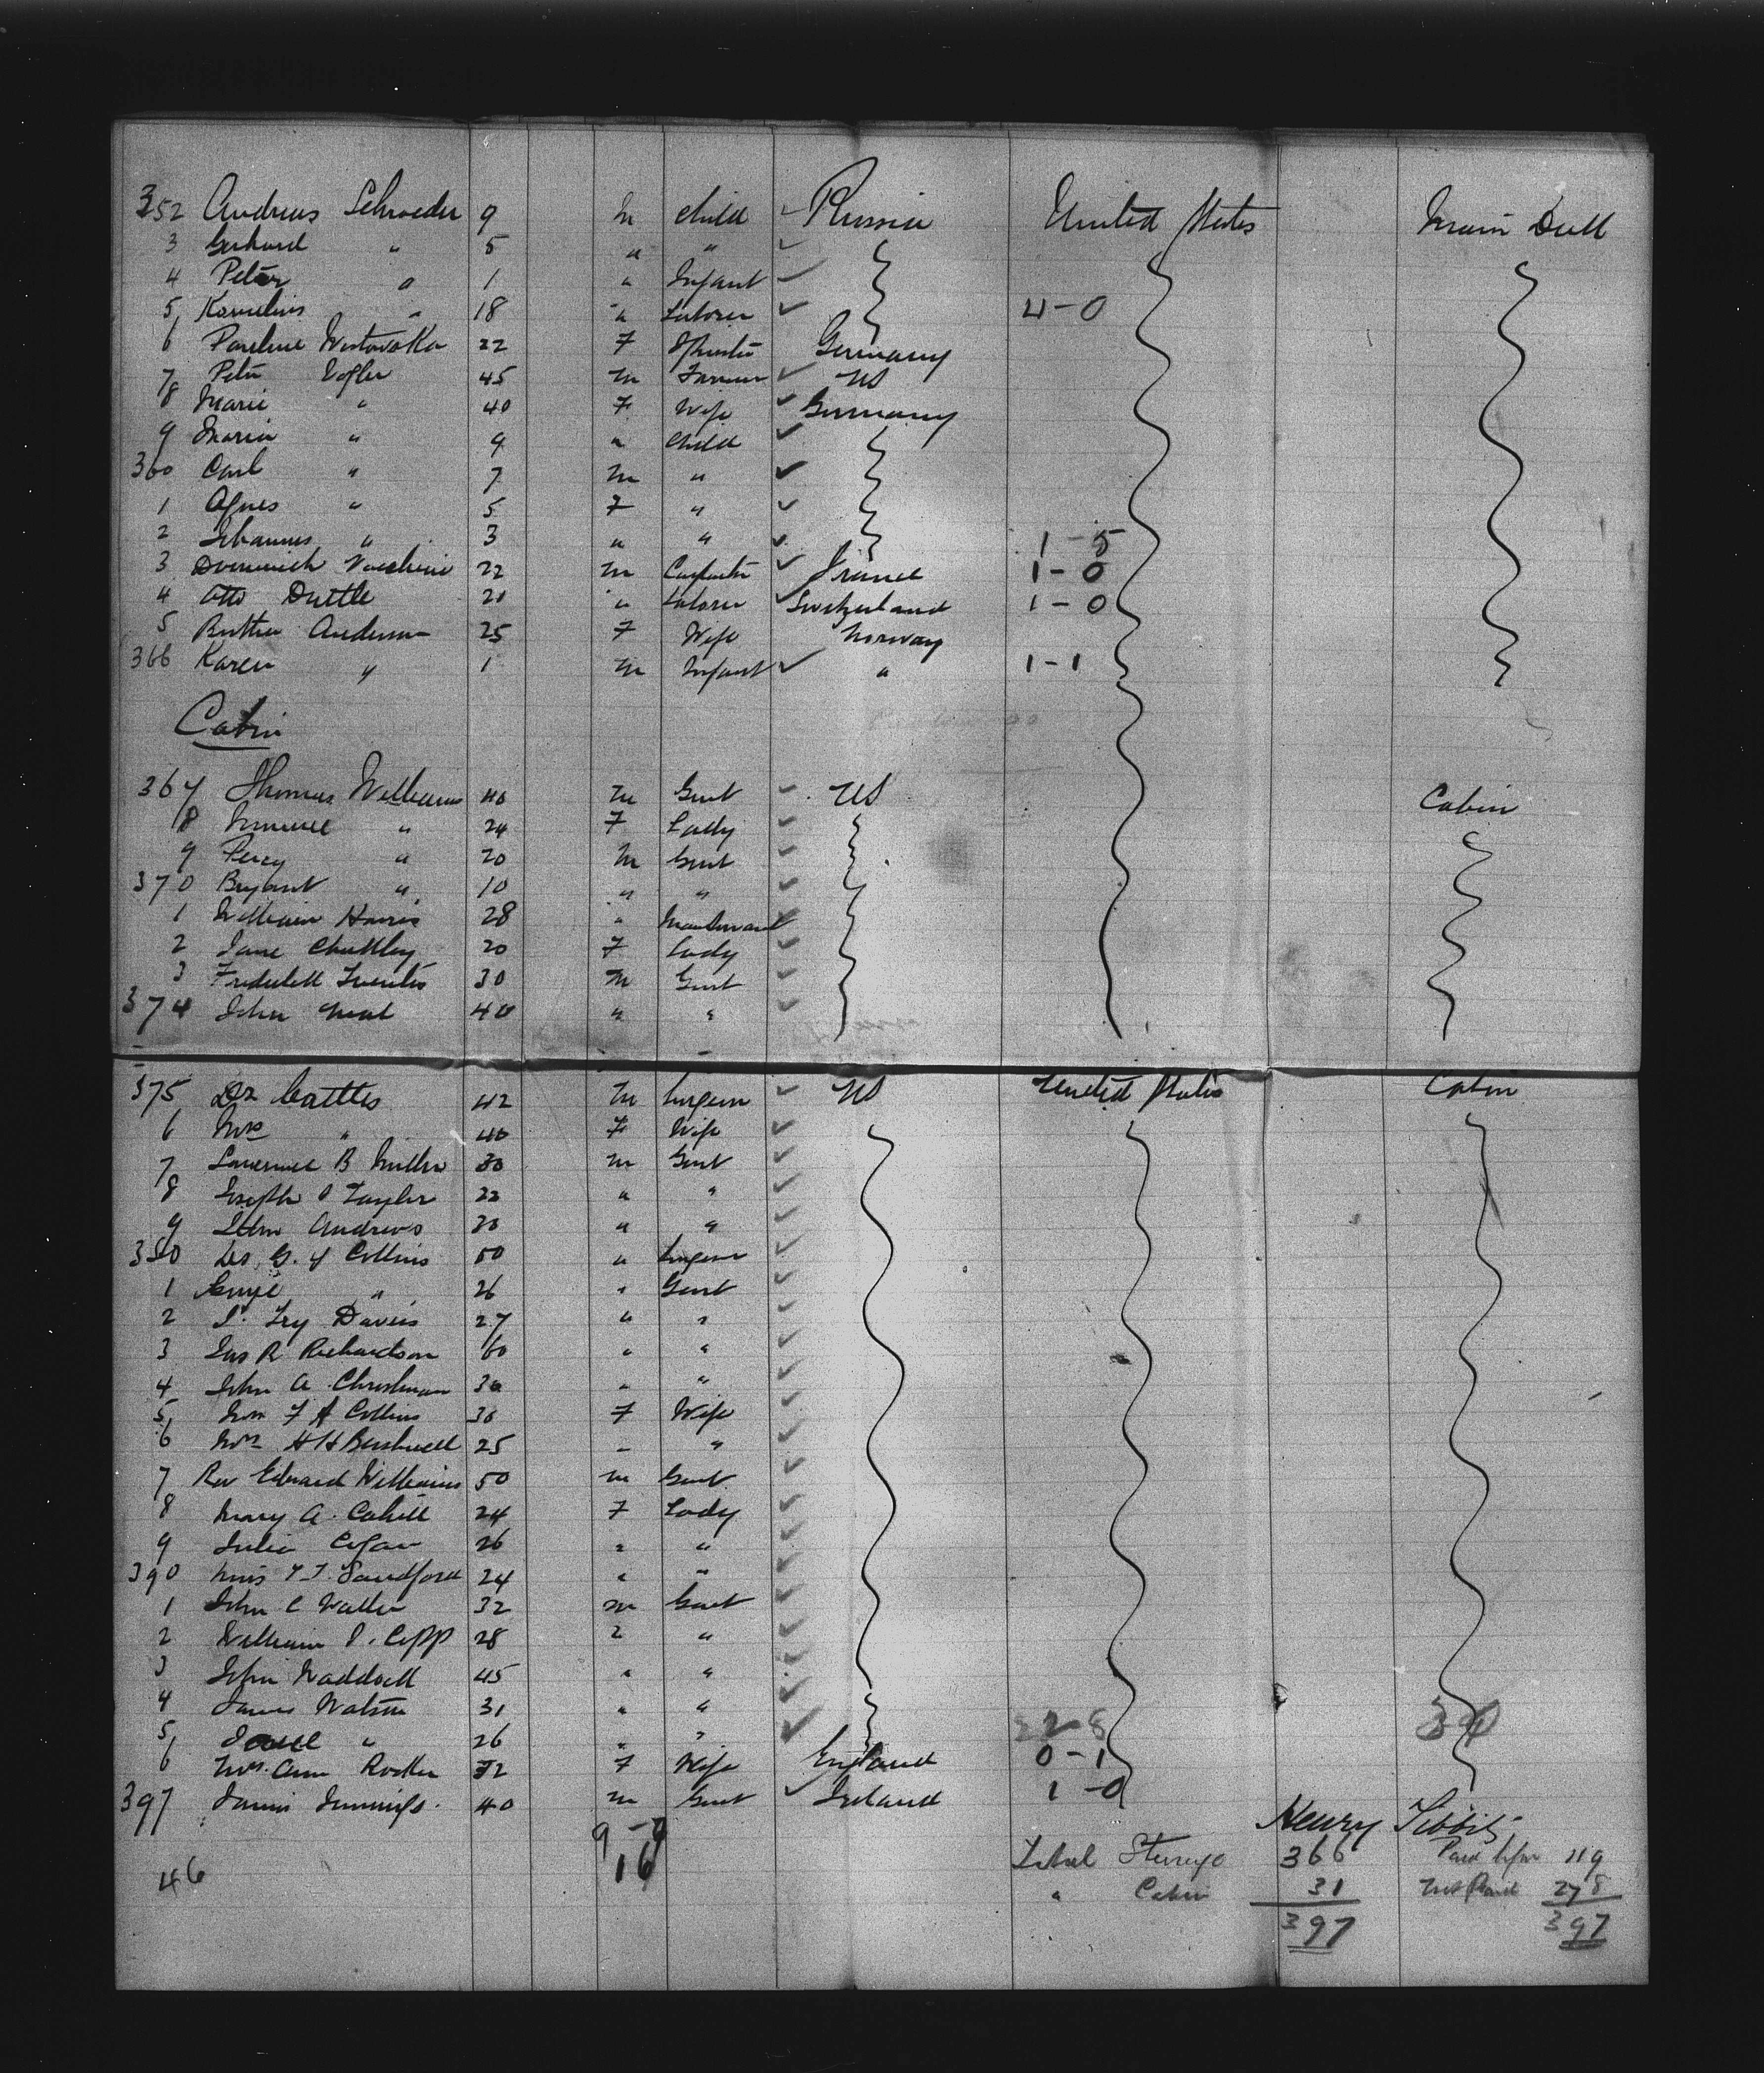 352 Andreas Schroeder 9 m child Russia United States Main Deck
3 Gerhard " 5 " "
4 Peter " 1 " Infant
5 Kornelius " 18 " Laborer 4-0
6 Pauline 22 F Spinster Germany
7 Peter Vogler 45 m Farmer US
8 Marie " 40 F Wife Germany
9 Maria " 9 " child
360 Carl " 7 m "
1 Agnes " 5 F "
2 Johannes " 3 " " 1-5
3 Dominich 22 m Carpenter France 1-0
4 Otto Duttle 21 " Laborer Switzerland 1-0
5 Anderson 25 F Wife Norway
366 Karen " 1 m Infant " 1-1
Cabin
367 Thomas Williams 40 m Gent US Cabin
8 " 24 F Lady
9 Percy " 20 m Gent
370 Bryant " 10 " "
1 William Harris 28 " Manservant
2 Jane 20 F Lady
3 30 m Gent
374 John 40 " "
375 Dr Cattles 42 m Surgeon US United States Cabin
6 Mrs " 40 F Wife
7 Lawrence B Miller 30 m Gent
8 Joseph Taylor 22 " "
9 John Andrews 30 " "
380 G. Y Collins 50 " Surgeon
1 " 26 " Gent
2 Fry Davies 27 " "
3 Jas R Richardson 60 " "
4 John A. Christman 30 " "
5 Mrs F A Collins 30 F Wife
6 Mrs H H Bushnell 25 - "
7 Rev Edward Williams 50 m Gent
8 Mary A. Cahill 24 F Lady
9 Julia Egan 26 " "
390 Miss Sandford 24 " "
1 John C Waller 32 m Gent
2 William Copp 28 " "
3 John Waddock 45 " "
4 James Watson 31 " "
5 " 26 " " 22-8
6 Mrs. Ann 32 F Wife England 0-1
397 James Jennings 40 m Gent Ireland 1-0
Henry Tibbits
9-7
16
46
Total Steerage 366 Paid before 119
" Cabin 31 Not Paid 278
397 397